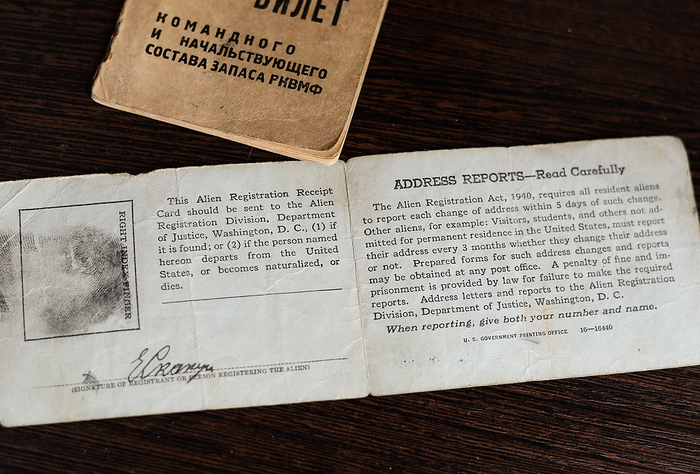 БИЛЕТ
КОМАНДНОГО
И НАЧАЛЬСТВУЮЩЕГО
СОСТАВА ЗАПАСА РКВМФ
RIGHT INDEX FINGER
This Alien Registration Receipt
Card should be sent to the Alien
Registration Division, Department
of Justice, Washington, D. C., (1) if
it is found; or (2) if the person named
hereon departs from the United
States, or becomes naturalized, or
dies.
(SIGNATURE OF REGISTRANT OR PERSON REGISTERING THE ALIEN)
ADDRESS REPORTS—Read Carefully
The Alien Registration Act, 1940, requires all resident aliens
to report each change of address within 5 days of such change.
Other aliens, for example: Visitors, students, and others not ad-
mitted for permanent residence in the United States, must report
their address every 3 months whether they change their address
or not. Prepared forms for such address changes and reports
may be obtained at any post office. A penalty of fine and im-
prisonment is provided by law for failure to make the required
reports. Address letters and reports to the Alien Registration
Division, Department of Justice, Washington, D. C.
When reporting, give both your number and name.
U. S. GOVERNMENT PRINTING OFFICE 16—16440